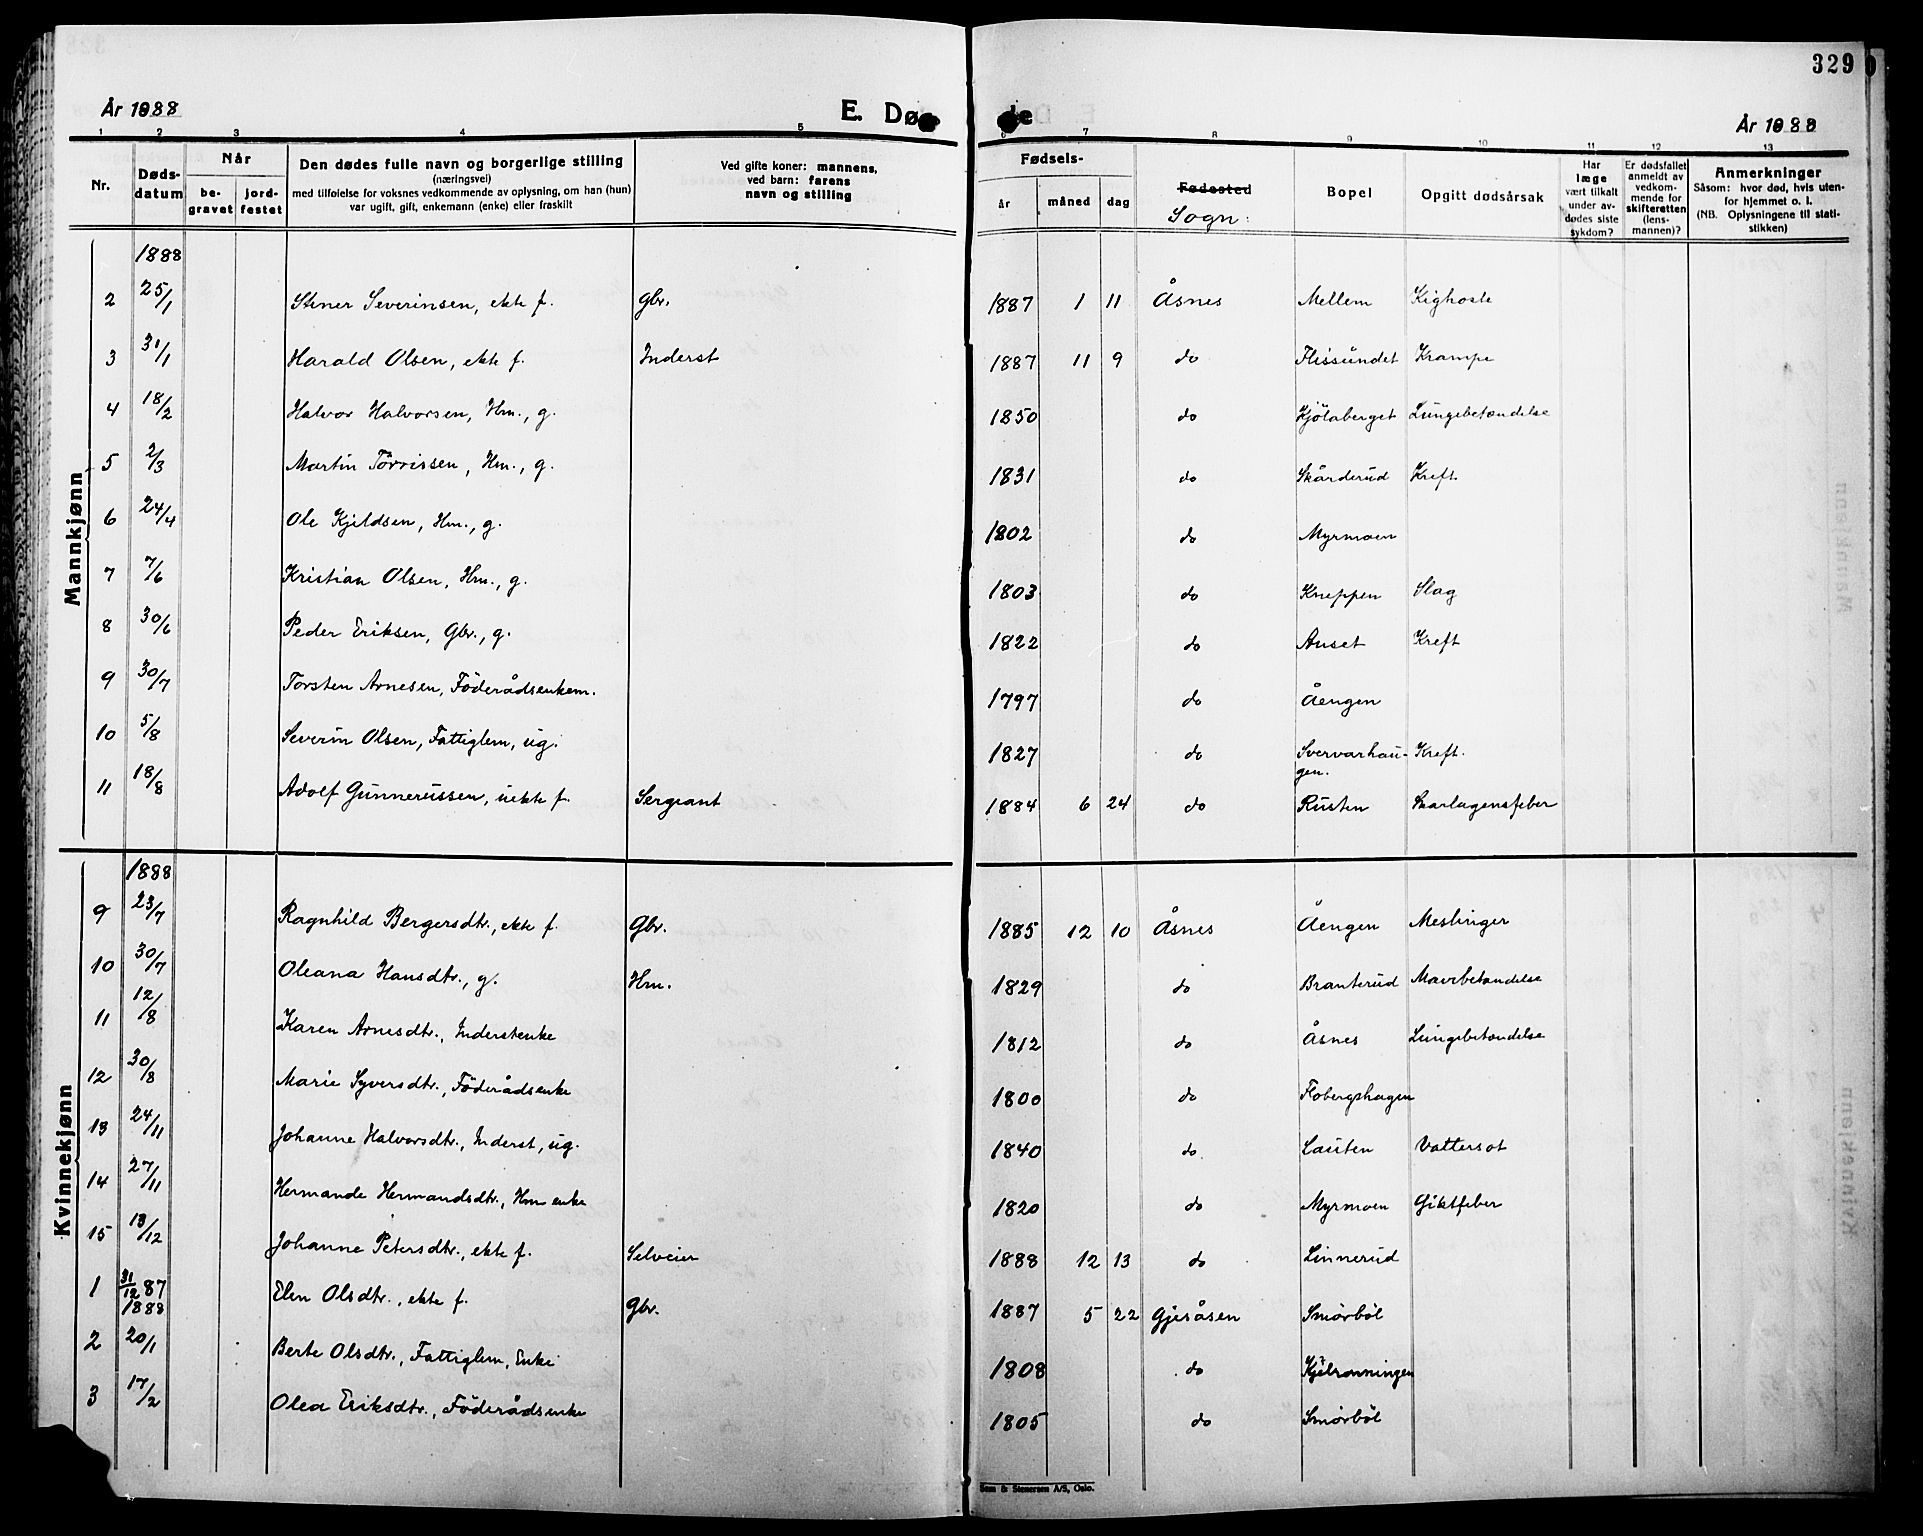 329
År 1888
E. Dø
de
År 1888
1 2 3 4 5
6 7 8 9 10 11 12 13
Nr.
Døds-
datum
Når
be-
gravet
jord-
festet
Den dødes fulle navn og borgerlige stilling
(næringsvei)
med tilføielse for voksnes vedkommende av oplysning, om han (hun)
var ugift, gift, enkemann (enke) eller fraskilt
Ved gifte koner: mannens,
ved barn: farens
navn og stilling
Fødsels-
år måned dag
Fødested
Sogn:
Bopel
Opgitt dødsårsak
Har
læge
vært tilkalt
under av-
dødes siste
sykdom?
Er dødsfallet
anmeldt av
vedkom-
mende for
skifteretten
(lens-
mannen)?
Anmerkninger
Såsom: hvor død, hvis uten-
for hjemmet o. l.
(NB. Oplysningene til stati-
stikken)
Mannkjønn
1888
2 25/1 Stener Severinsen, ekte f. gbr. 1887 1 11 Åsnes Mellem Kighoste
3 31/1 Harald Olsen, ekte f. Inderst 1887 11 9 do Flissundet Krampe
4 18/2 Halvor Halvorsen, Hm., g. 1850 do Kjölaberget Lungebetændelse
5 2/3 Martin Törrissen, Hm., g. 1831 do Skårderud Kreft.
6 24/4 Ole Kjeldsen, Hm., g. 1802 do Myrmoen
7 7/6 Kristian Olsen, Hm., g. 1803 do Kneppen Slag
8 30/6 Peder Eriksen, Gbr., g. 1822 do Auset Kreft
9 30/7 Torsten Arnesen, Föderådsenkem. 1797 do Åengen
10 5/8 Severin Olsen, Fattiglem, ug. 1827 do Svervarhau-
gen. Kreft.
11 18/8 Adolf Gunnerussen, uekte f. Sergeant 1884 6 24 do Rusten Skarlagensfeber
Kvinnekjønn
1888
9 23/7 Ragnhild Bergersdtr., ekte f. Gbr. 1885 12 10 Åsnes Åengen Meslinger
10 30/7 Oleana Hansdtr., g. Hm. 1829 do Branterud Mavebetændelse
11 12/8 Karen Arnesdtr., Inderstenke 1812 do Åsnes Lungebetændelse
12 30/8 Marie Syversdtr., Föderådsenke 1800 do Flobergshagen
13 24/11 Johanne Halvorsdtr., Inderst, ug. 1840 do. Lauten Vattersot
14 27/11 Hermande Hermandsdtr., Hm enke 1820 do Myrmoen Giktfeber
15 13/12 Johanne Petersdtr., ekte f. Selveier 1888 12 13 do Linnerud
1 31/12 87 Elen Olsdtr., ekte f. Gbr. 1887 5 22 Gjesåsen Smörböl
1888
2 20/1 Berte Olsdtr., Fattiglem, Enke 1808 do Kjölrönningen
3 17/2 Olea Eriksdtr., Föderådsenke 1805 do Smörböl
Sem & Stenersen A/S, Oslo.